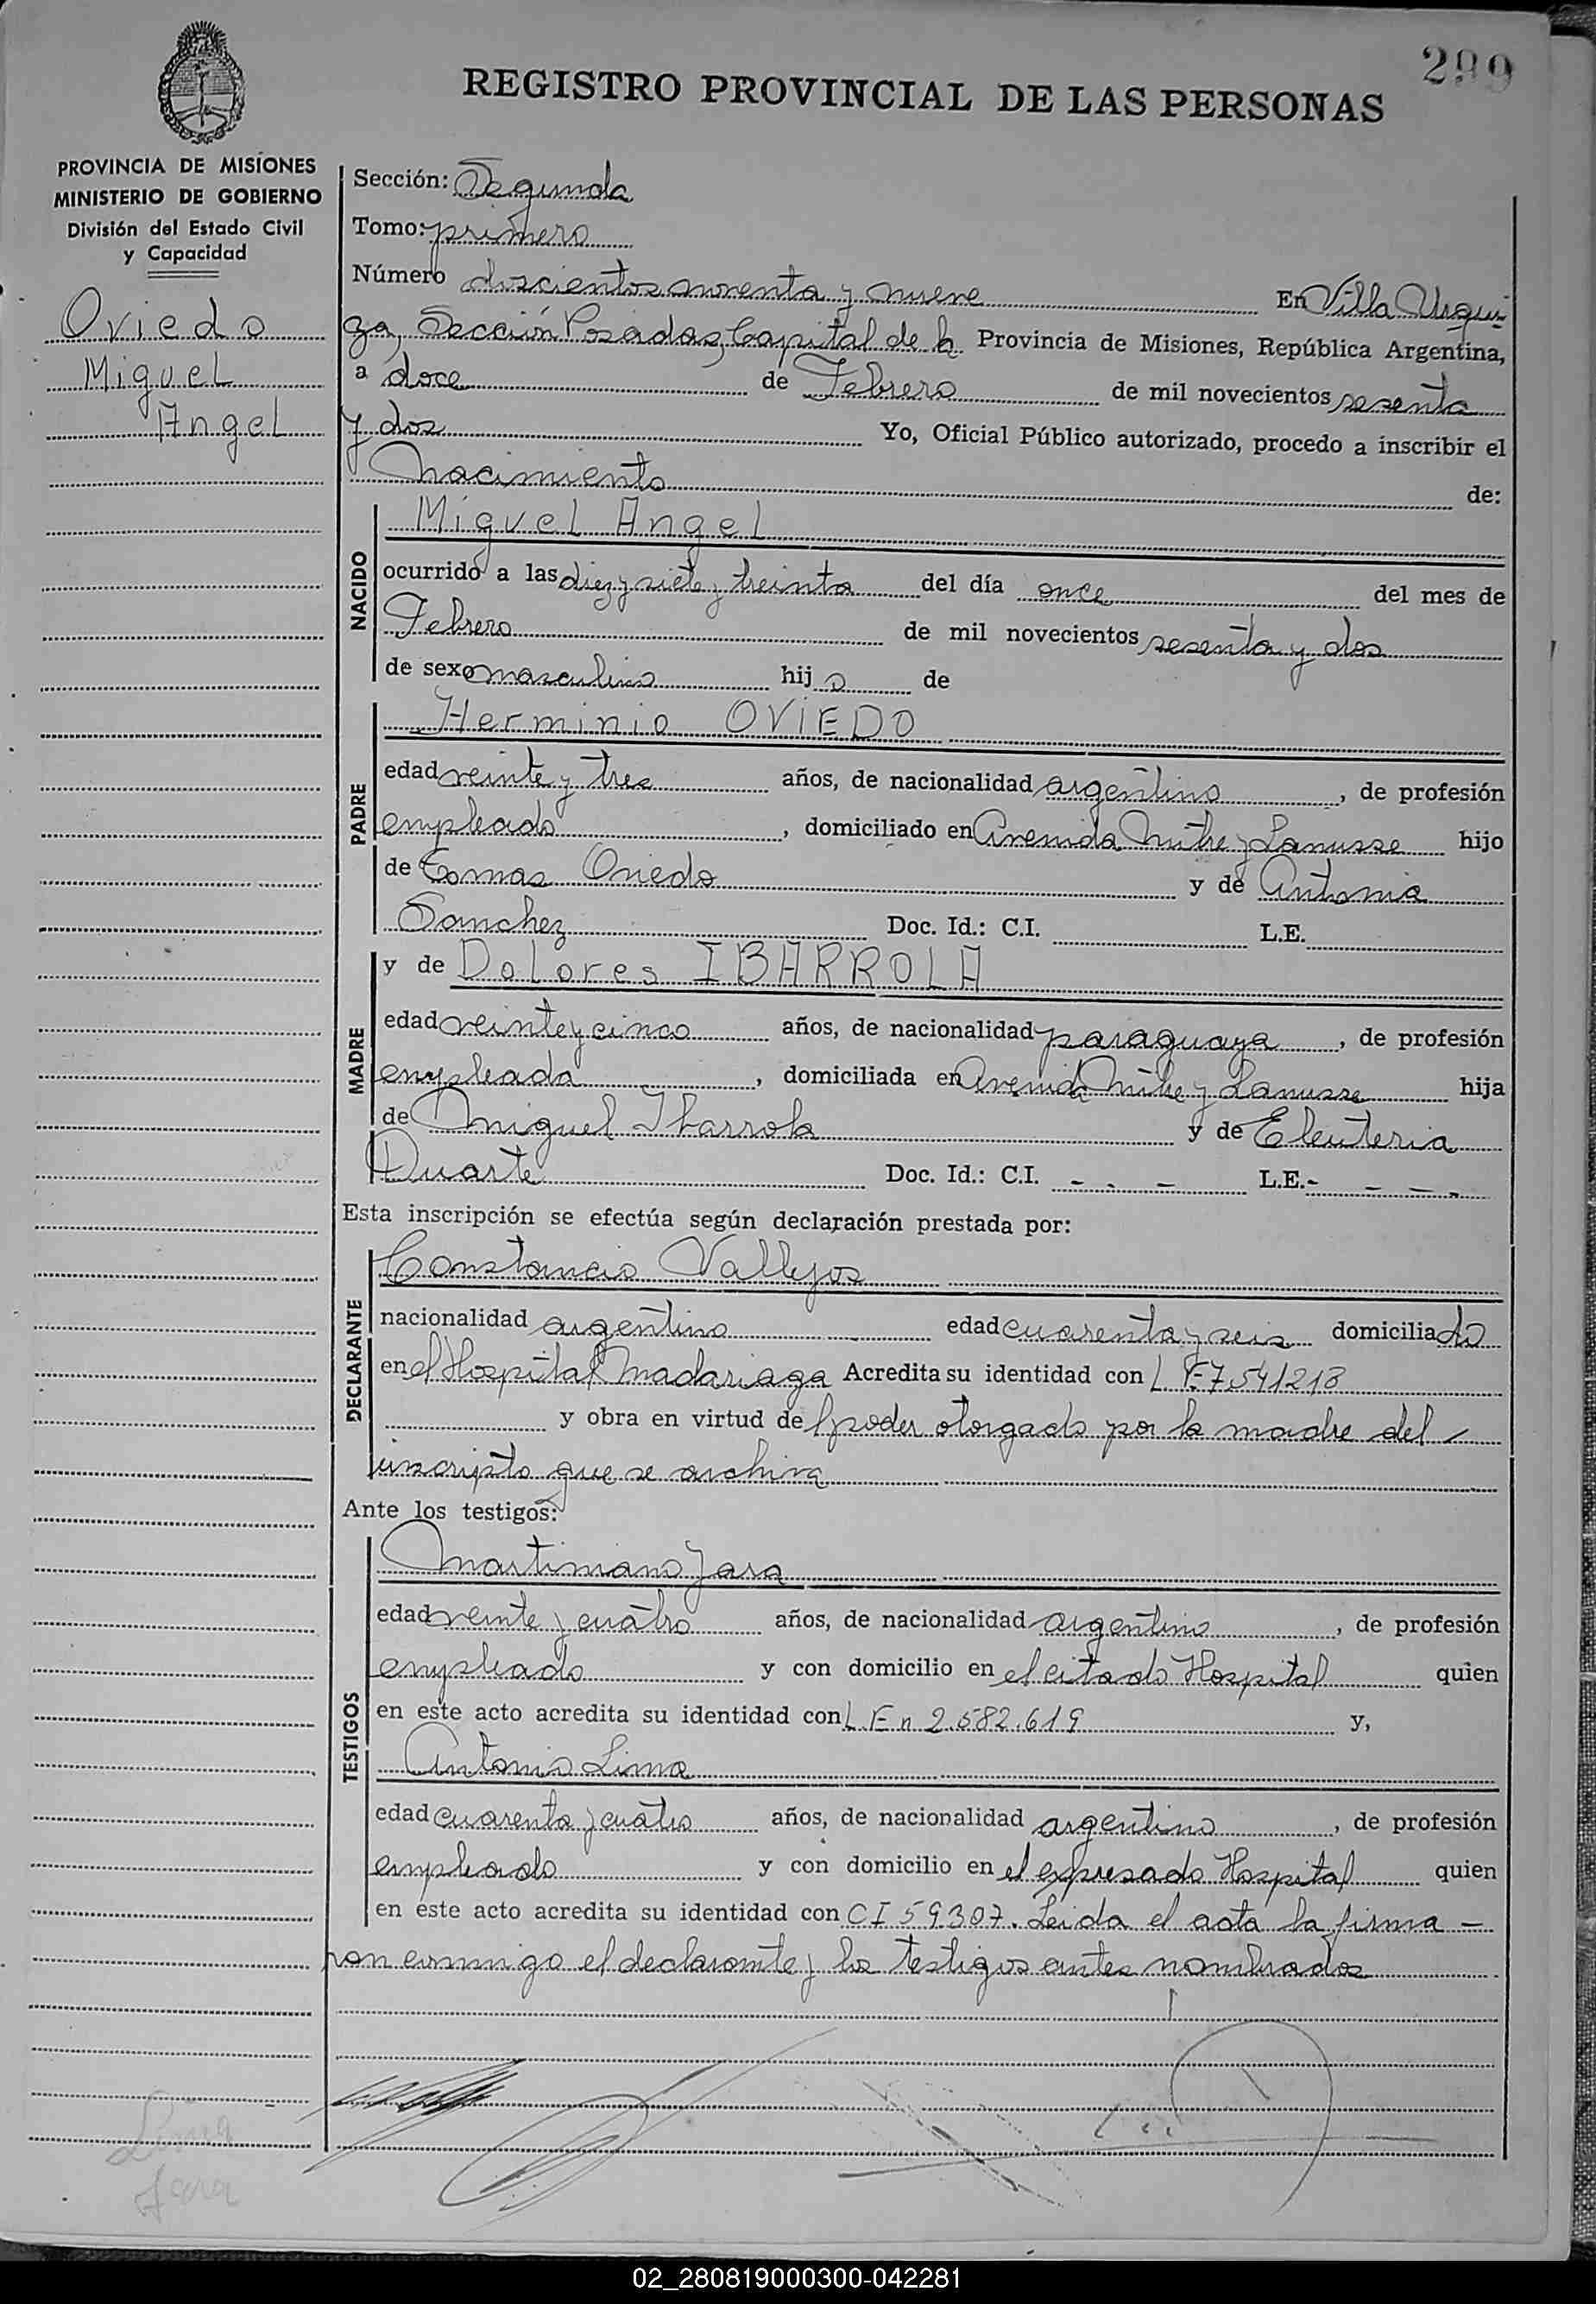 299
REGISTRO PROVINCIAL DE LAS PERSONAS
PROVINCIA DE MISIONES
MINISTERIO DE GOBIERNO
División del Estado Civil
y Capacidad
Oviedo
Miguel
Angel
Sección: Segunda
Tomo: primero
Número doscientos noventa y nueve En Villa Urqui-
za, Sección Posadas, Capital de la Provincia de Misiones, República Argentina,
a doce de Febrero de mil novecientos sesenta
y dos Yo, Oficial Público autorizado, procedo a inscribir el
Nacimiento de:
NACIDO
Miguel Angel
ocurrido a las diez y siete y treinta del día once del mes de
Febrero de mil novecientos sesenta y dos
de sexo masculino hijo de
PADRE
Herminio OVIEDO
edad veinte y tres años, de nacionalidad argentino, de profesión
empleado, domiciliado en Avenida Mitre y Lanusse hijo
de Tomas Oviedo y de Antonia
Sanchez Doc. Id.: C.I. L.E.
MADRE
y de Dolores IBARROLA
edad veinte y cinco años, de nacionalidad paraguaya, de profesión
empleada, domiciliada en Avenida Mitre y Lanusse hija
de Miguel Ibarrola y de Eleuteria
Duarte Doc. Id.: C.I. - - - L.E. - - - -
Esta inscripción se efectúa según declaración prestada por:
DECLARANTE
Constancio Vallejos
nacionalidad argentino edad cuarenta y seis domiciliado
en el Hospital Madariaga Acredita su identidad con L E 7.541213
y obra en virtud de poder otorgado por la madre del
inscripto que se archiva
Ante los testigos:
TESTIGOS
Martiniano Jara
edad veinte y cuatro años, de nacionalidad argentino, de profesión
empleado y con domicilio en el citado Hospital quien
en este acto acredita su identidad con L.E n 2.582.619 y,
Antonio Lima
edad cuarenta y cuatro años, de nacionalidad argentino, de profesión
empleado y con domicilio en el expresado Hospital quien
en este acto acredita su identidad con C I 59.307. Leida el acta la firma-
ron conmigo el declarante y los testigos antes nombrados
Lima
Jara
02_280819000300-042281